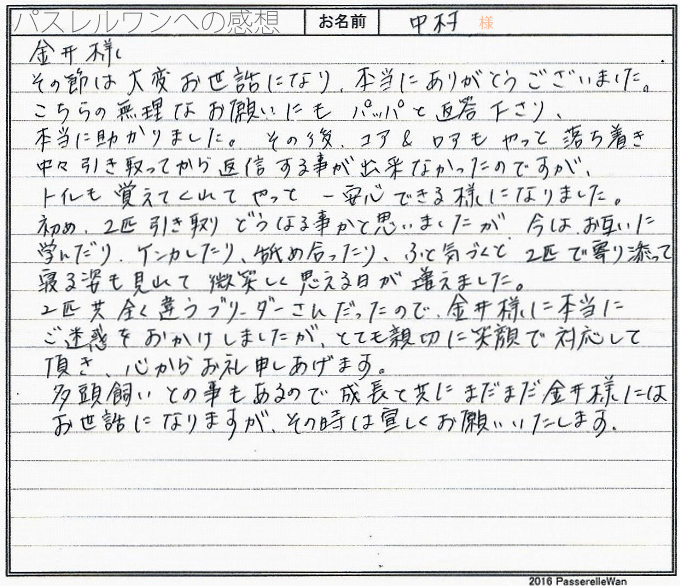 パスレルワンへの感想 お名前 中村 様
金井様
その節は大変お世話になり、本当にありがとうございました。
こちらの無理なお願いにも パッパと返答下さり、
本当に助かりました。その後、コア & ロアも やっと 落ち着き
中々引き取ってから返信する事が出来なかったのですが、
トイレも覚えてくれて やっと 一安心できる様になりました。
初め、2匹引き取り どうなる事かと思いましたが、今は、お互いに
学んだり、ケンカしたり、舐め合ったり、ふと気づくと 2匹で寄り添って
寝る姿も見れて 微笑しく思える日が 増えました。
2匹共全く違うブリーダーさんだったので、金井様に本当に
ご迷惑をおかけしましたが、とても親切に笑顔で対応して
頂き、心からお礼申しあげます。
多頭飼いとの事もあるので 成長と共に まだまだ 金井様には
お世話になりますが、その時は宜しくお願いいたします。
2016 PasserelleWan